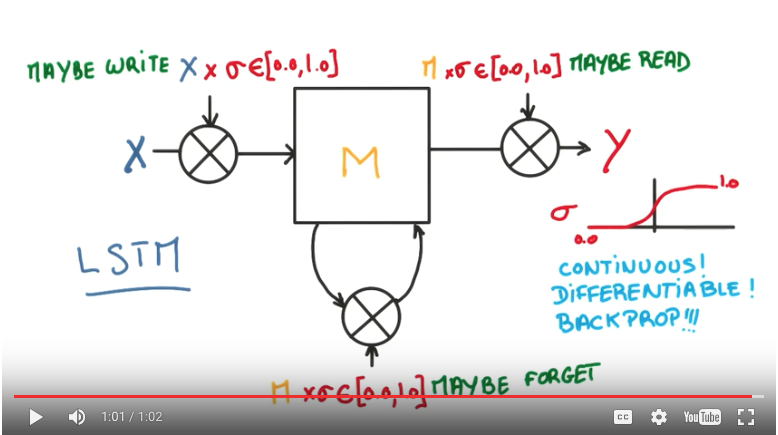 MAYBE WRITE X x σ∈[0.0,1.0]
M xσ∈[0.0,1.0] MAYBE READ
X
M
Y
σ
1.0
0.0
LSTM
CONTINUOUS!
DIFFERENTIABLE!
BACKPROP!!!
M xσ∈[0.0,1.0] MAYBE FORGET
1:01 / 1:02
CC
YouTube